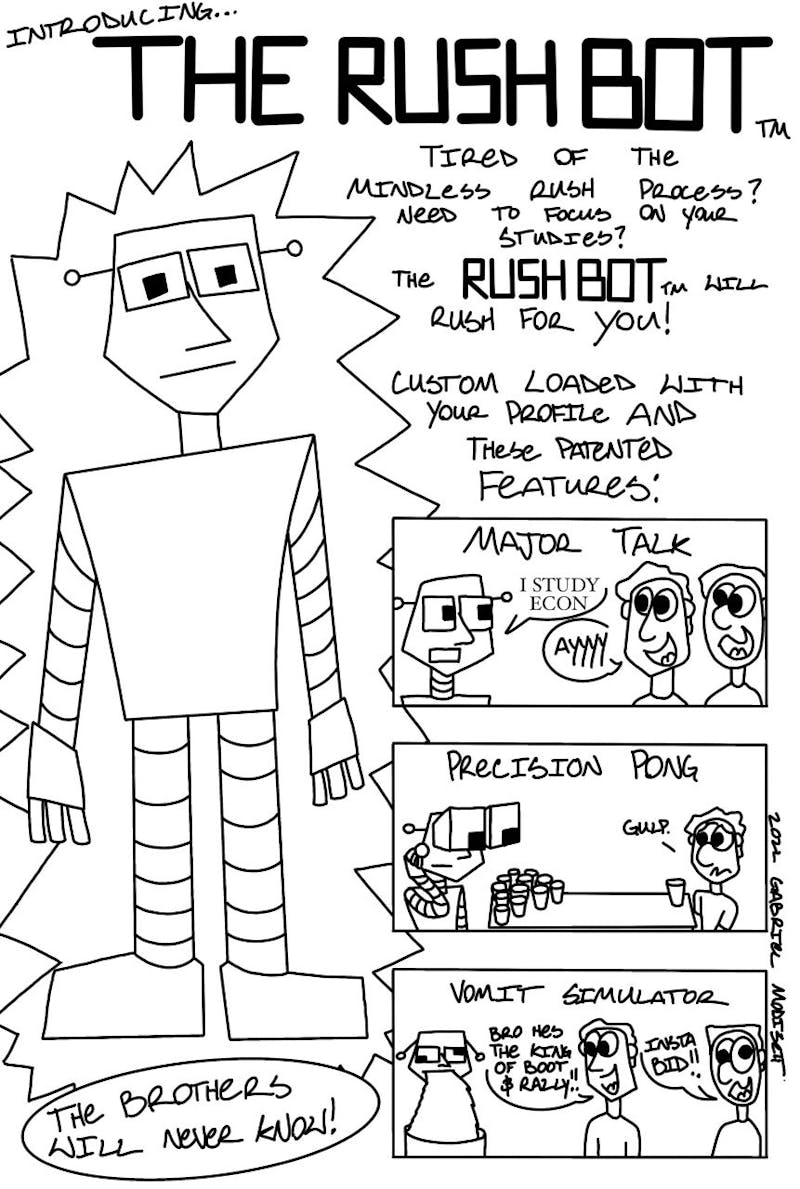 INTRODUCING...
THE RUSH BOT TM
TIRED OF THE
MINDLESS RUSH PROCESS?
NEED TO FOCUS ON YOUR
STUDIES?
THE RUSH BOT TM WILL
RUSH FOR YOU!
CUSTOM LOADED WITH
YOUR PROFILE AND
THESE PATENTED
FEATURES:
MAJOR TALK
I STUDY
ECON
AYYYY
PRECISION PONG
GULP.
VOMIT SIMULATOR
BRO HES
THE KING
OF BOOT
& RALLY!!
INSTA
BID!!
THE BROTHERS
WILL NEVER KNOW!
2022 GABRIEL MODISETT